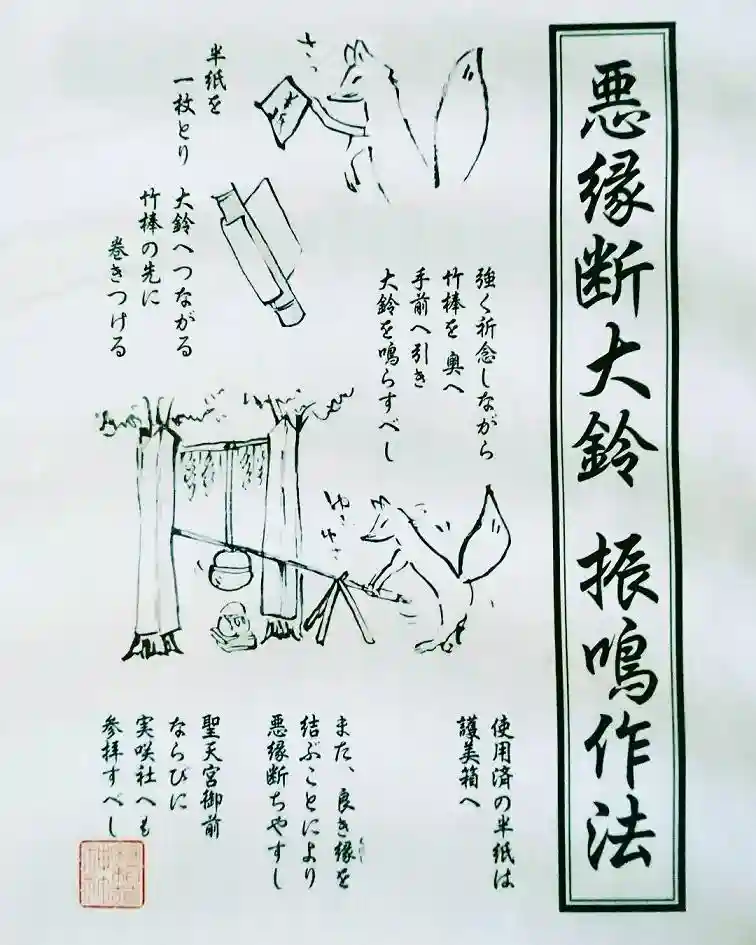 悪縁断大鈴 振鳴作法
さっ
半紙を
一枚とり
大鈴へつながる
竹棒の先に
巻きつける
強く祈念しながら
竹棒を 奥へ
手前へ引き
大鈴を鳴らすべし
ゆさ
ゆさ
使用済の半紙は
護美箱へ
また、良き縁を
結ぶことにより
悪縁断ちやすし
聖天宮御前
ならびに
実咲社へも
参拝すべし